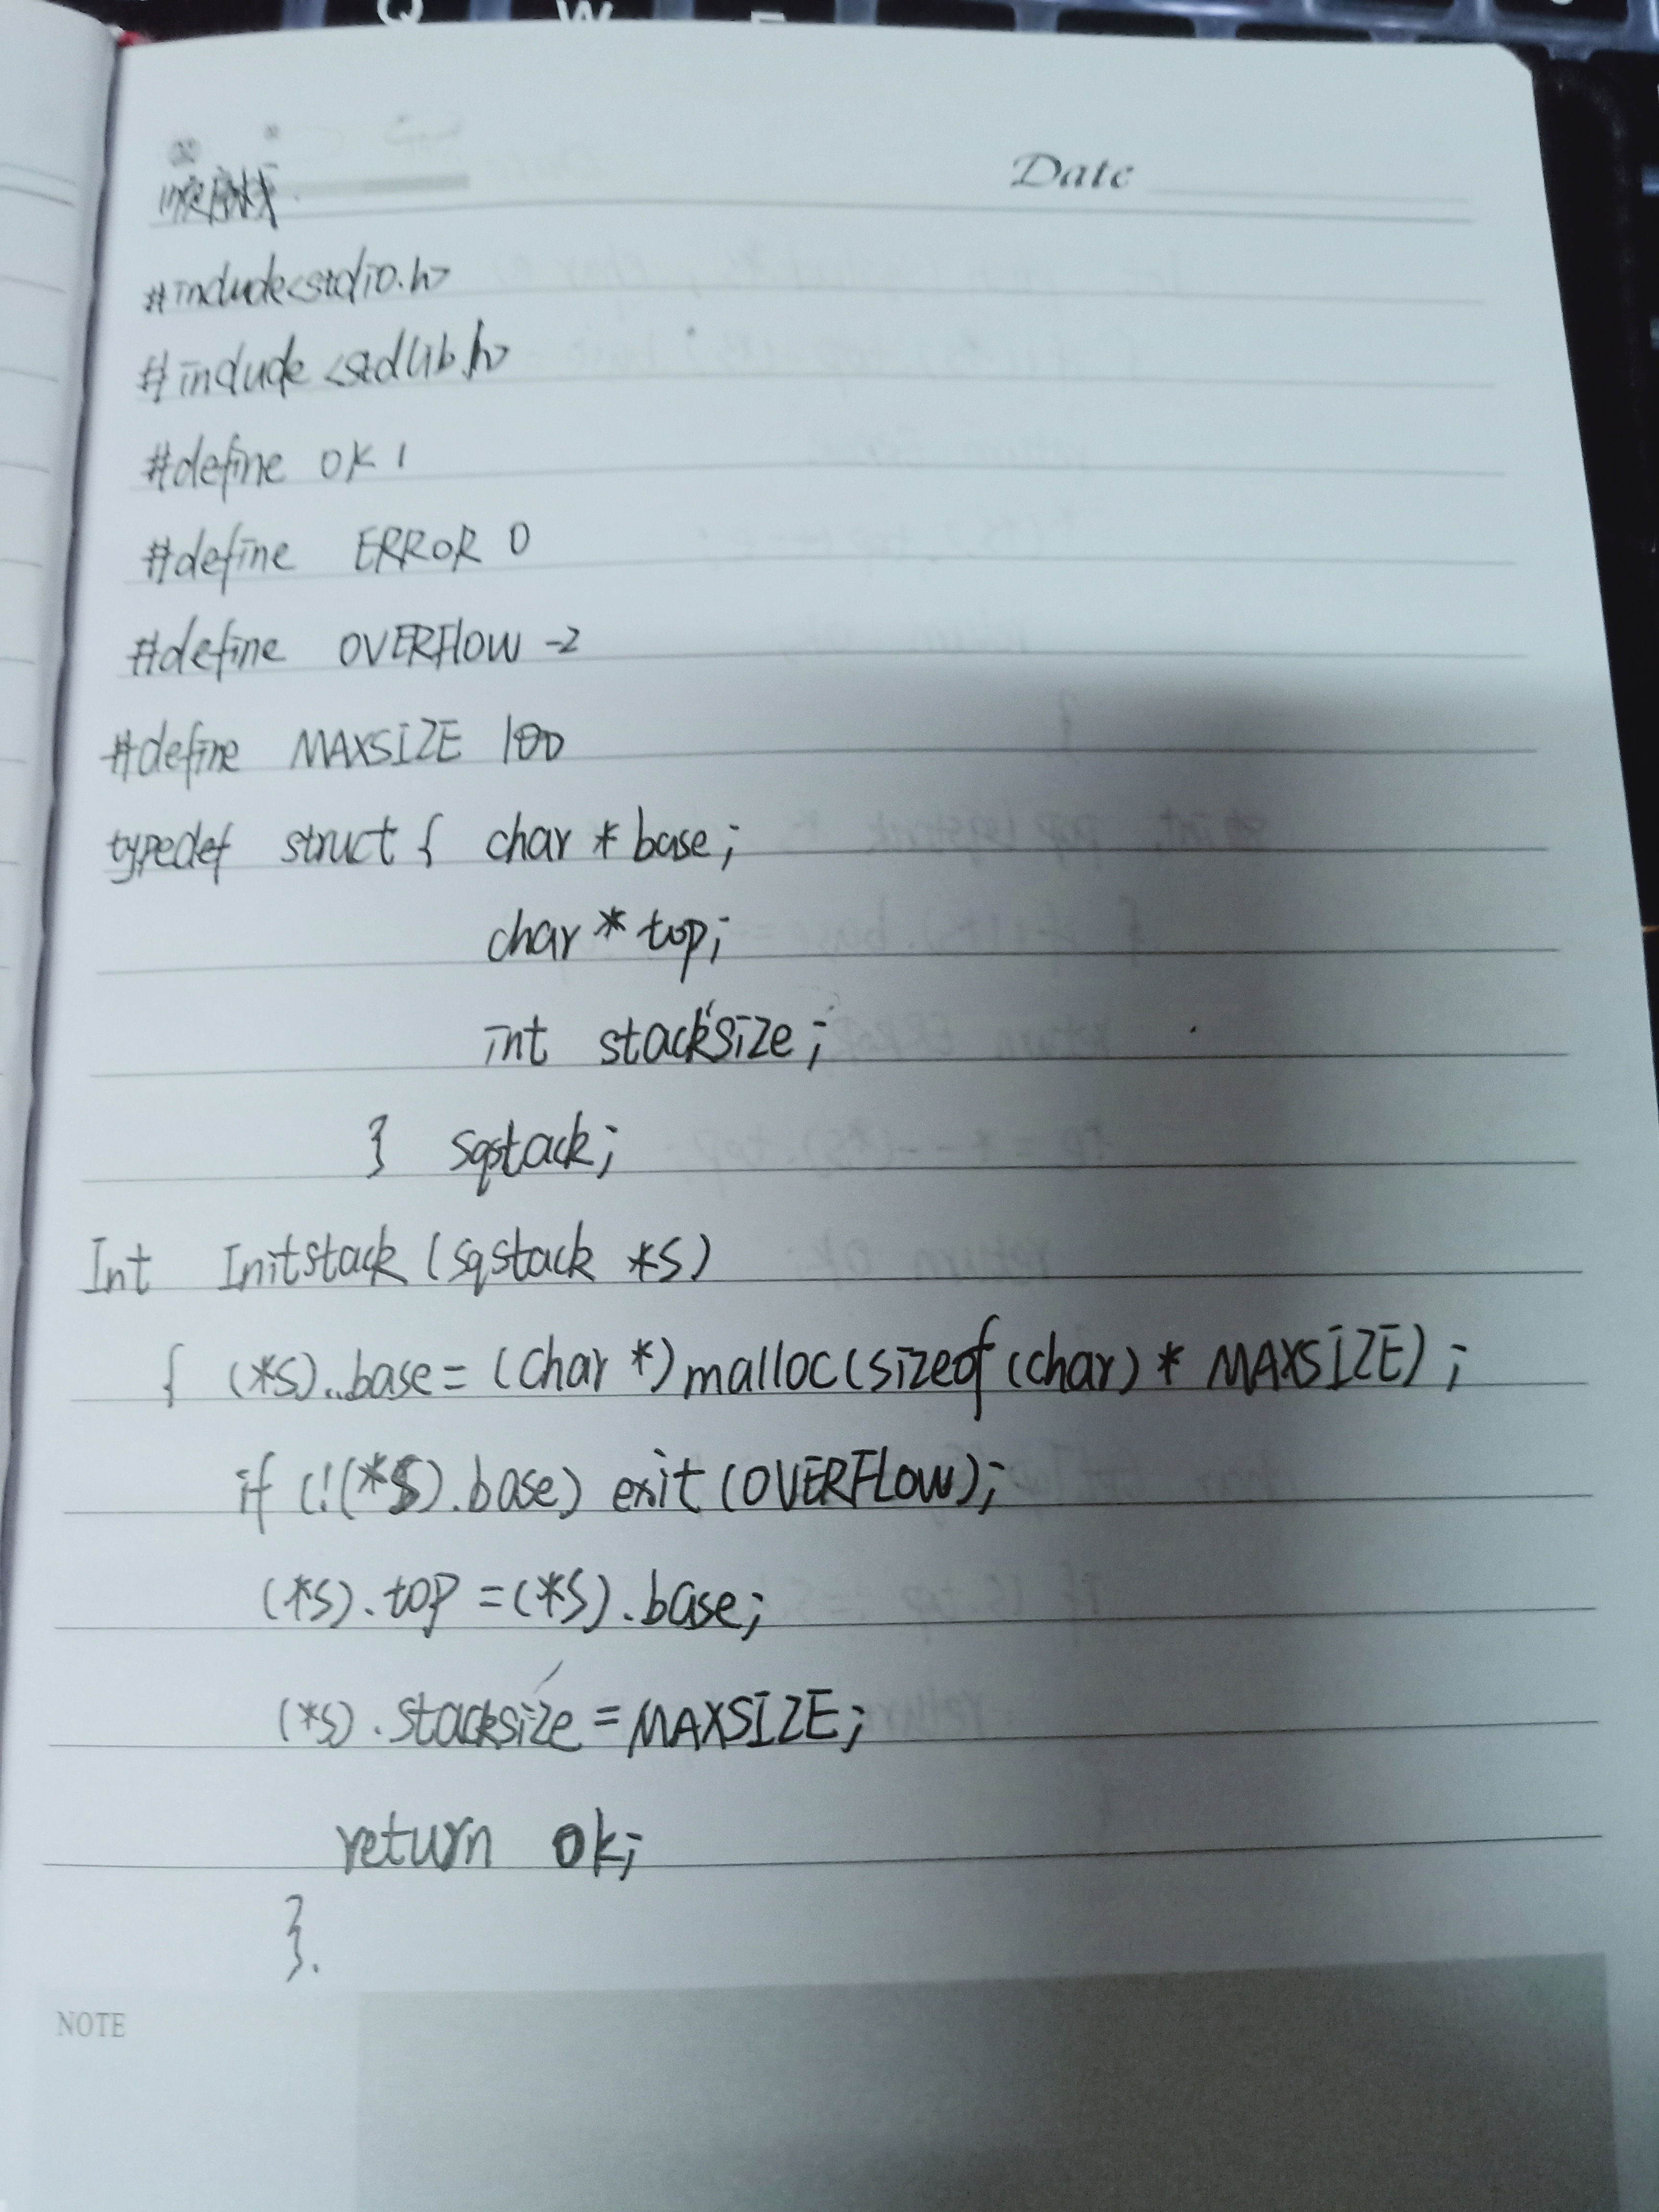 Q W E
Date
顺序栈.
#include<stdio.h>
#include <stdlib.h>
#define OK 1
#define ERROR 0
#define OVERFlOW -2
#define MAXSIZE 100
typedef struct { char * base;
char * top;
int stacksize;
} sqstack;
Int Initstack (sqstack *S)
{ (*S)..base = (char *) malloc (sizeof (char) * MAXSIZE) ;
if (!(*S).base) exit (OVERFLOW);
(*S).top = (*S).base;
(*S).stacksize = MAXSIZE;
return ok;
}.
NOTE